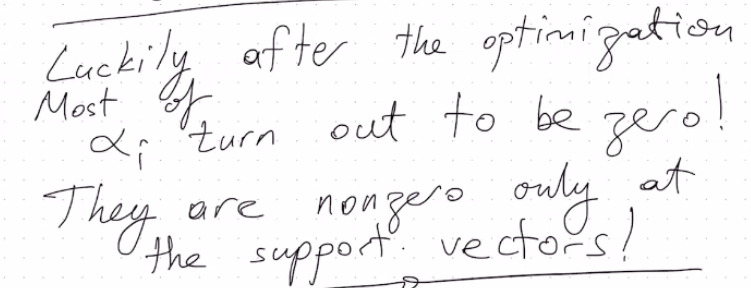 Luckily after the optimization
Most of
αi turn out to be zero!
They are nonzero only at
the support vectors!